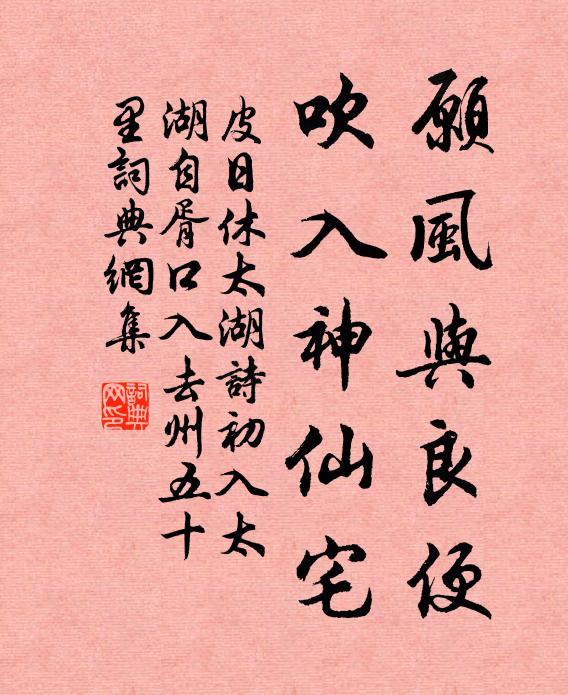 願風與良便
吹入神仙宅
皮日休太湖詩初入太
湖自胥口入去州五十
里詞典網集
詞典
网印